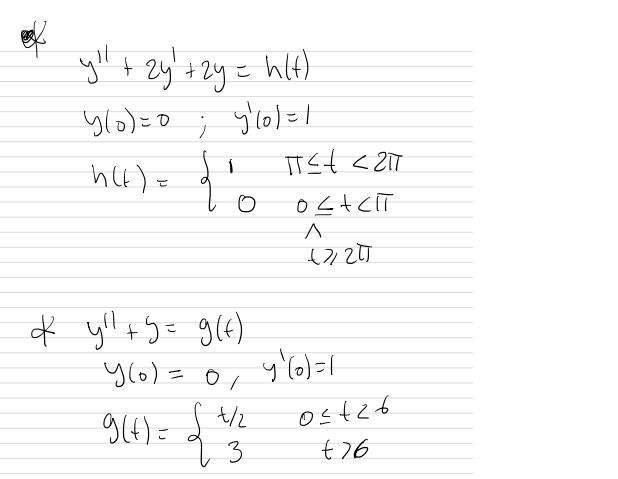 y'' + 2y' + 2y = h(t)
y(0)=0 ; y'(0)=1
h(t) = { 1 π≤t <2π
0 0≤t<π
∧
t≥2π
y'' + y = g(t)
y(0) = 0, y'(0)=1
g(t) = { t/2 0≤t<6
3 t>6